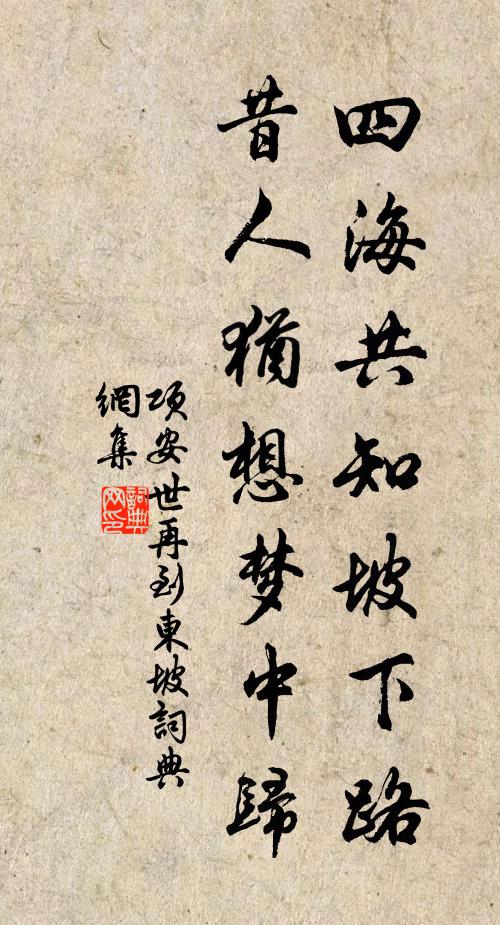 四海共知坡下路
昔人猶想梦中歸
項安世再到東坡詞典
網集
詞典
网印